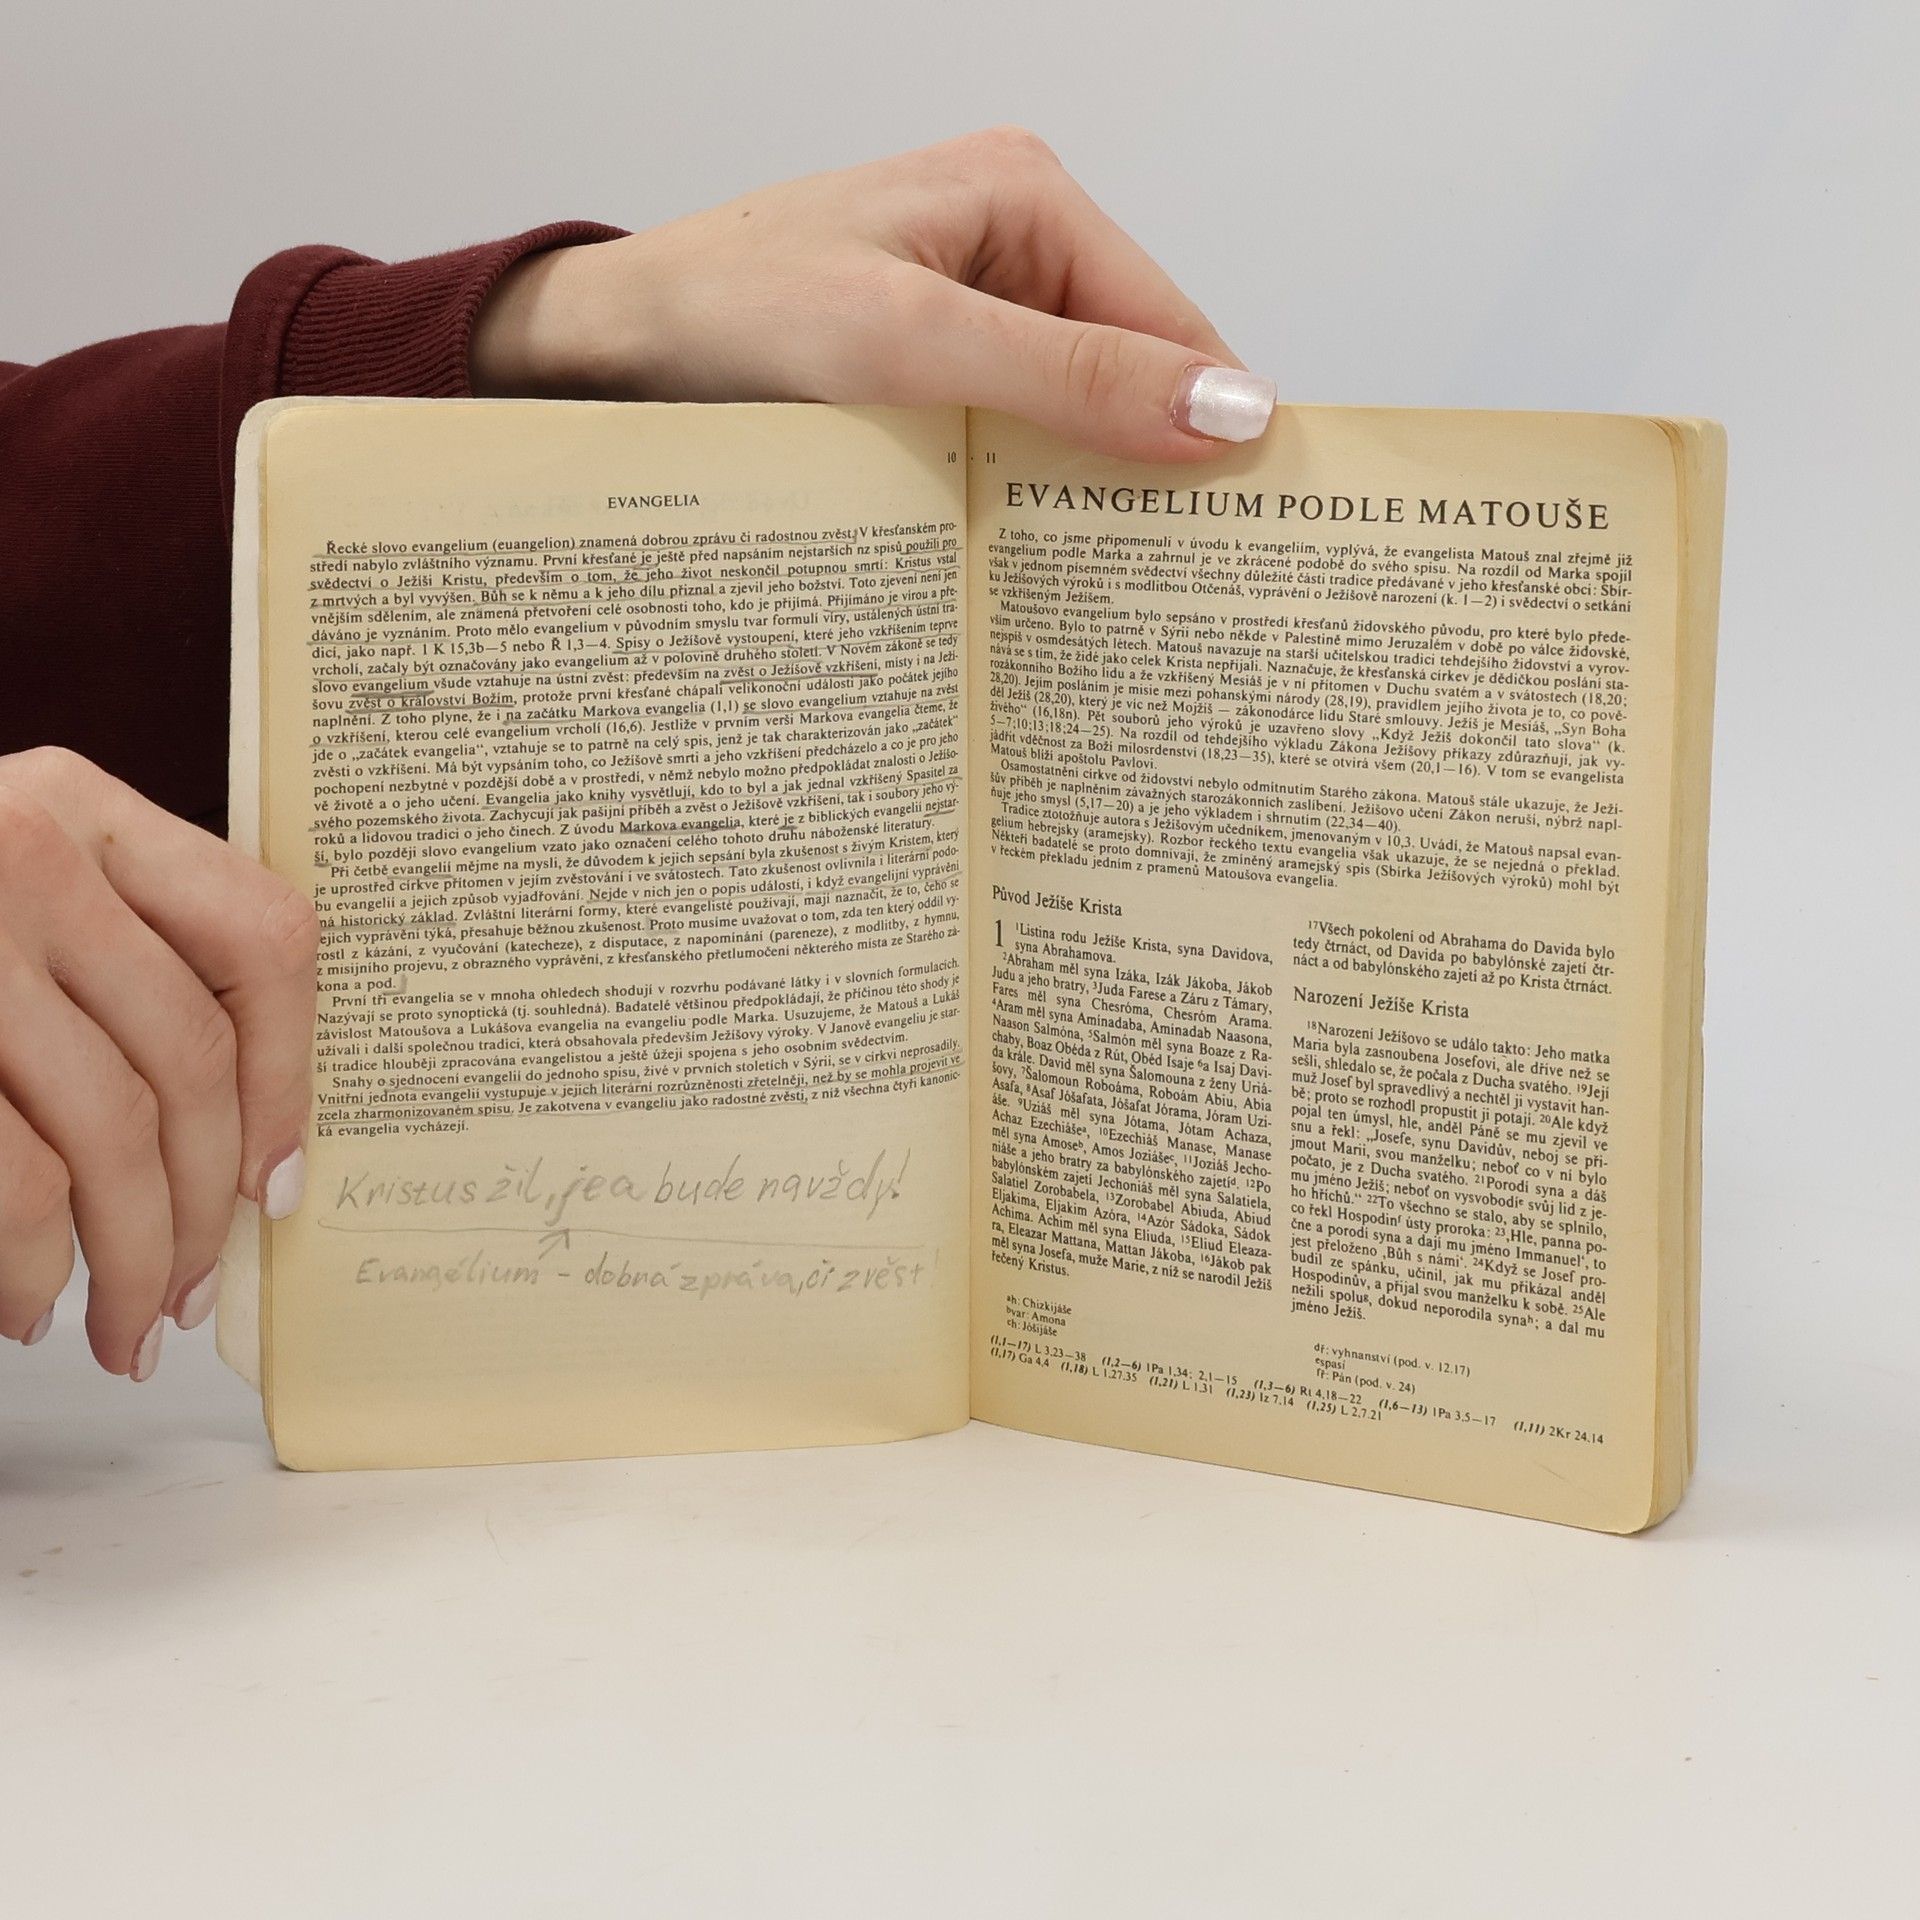 10 · 11
EVANGELIA
Řecké slovo evangelium (euangelion) znamená dobrou zprávu či radostnou zvěst. V křesťanském pro-
středí nabylo zvláštního významu. První křesťané je ještě před napsáním nejstarších nz spisů použili pro
svědectví o Ježíši Kristu, především o tom, že jeho život neskončil potupnou smrtí: Kristus vstal
z mrtvých a byl vyvýšen. Bůh se k němu a k jeho dílu přiznal a zjevil jeho božství. Toto zjevení není jen
vnějším sdělením, ale znamená přetvoření celé osobnosti toho, kdo je přijímá. Přijímáno je vírou a pře-
dáváno je vyznáním. Proto mělo evangelium v původním smyslu tvar formulí víry, ustálených ústní tra-
dicí, jako např. 1 K 15,3b—5 nebo Ř 1,3—4. Spisy o Ježíšově vystoupení, které jeho vzkříšením teprve
vrcholí, začaly být označovány jako evangelium až v polovině druhého století. V Novém zákoně se tedy
slovo evangelium všude vztahuje na ústní zvěst: především na zvěst o Ježíšově vzkříšení, místy i na Ježí-
šovu zvěst o království Božím, protože první křesťané chápali velikonoční události jako počátek jejího
naplnění. Z toho plyne, že i na začátku Markova evangelia (1,1) se slovo evangelium vztahuje na zvěst
o vzkříšení, kterou celé evangelium vrcholí (16,6). Jestliže v prvním verši Markova evangelia čteme, že
jde o „začátek evangelia“, vztahuje se to patrně na celý spis, jenž je tak charakterizován jako „začátek“
zvěsti o vzkříšení. Má být vypsáním toho, co Ježíšově smrti a jeho vzkříšení předcházelo a co je pro jeho
pochopení nezbytné v pozdější době a v prostředí, v němž nebylo možno předpokládat znalosti o Ježíšo-
vě životě a o jeho učení. Evangelia jako knihy vysvětlují, kdo to byl a jak jednal vzkříšený Spasitel za
svého pozemského života. Zachycují jak pašijní příběh a zvěst o Ježíšově vzkříšení, tak i soubory jeho vý-
roků a lidovou tradici o jeho činech. Z úvodu Markova evangelia, které je z biblických evangelií nejstar-
ší, bylo později slovo evangelium vzato jako označení celého tohoto druhu náboženské literatury.
Při četbě evangelií mějme na mysli, že důvodem k jejich sepsání byla zkušenost s živým Kristem, který
je uprostřed církve přítomen v jejím zvěstování i ve svátostech. Tato zkušenost ovlivnila i literární podo-
bu evangelií a jejich způsob vyjadřování. Nejde v nich jen o popis událostí, i když evangelijní vyprávění
má historický základ. Zvláštní literární formy, které evangelisté používají, mají naznačit, že to, čeho se
jejich vyprávění týká, přesahuje běžnou zkušenost. Proto musíme uvažovat o tom, zda ten který oddíl vy-
rostl z kázání, z vyučování (katecheze), z disputace, z napomínání (pareneze), z modlitby, z hymnu,
z misijního projevu, z obrazného vyprávění, z křesťanského přetlumočení některého místa ze Starého zá-
kona a pod.
První tři evangelia se v mnoha ohledech shodují v rozvrhu podávané látky i v slovních formulacích.
Nazývají se proto synoptická (tj. souhledná). Badatelé většinou předpokládají, že příčinou této shody je
závislost Matoušova a Lukášova evangelia na evangeliu podle Marka. Usuzujeme, že Matouš a Lukáš
užívali i další společnou tradici, která obsahovala především Ježíšovy výroky. V Janově evangeliu je star-
ší tradice hlouběji zpracována evangelistou a ještě úžeji spojena s jeho osobním svědectvím.
Snahy o sjednocení evangelií do jednoho spisu, živé v prvních stoletích v Sýrii, se v církvi neprosadily.
Vnitřní jednota evangelií vystupuje v jejich literární rozrůzněnosti zřetelněji, než by se mohla projevit ve
zcela zharmonizovaném spisu. Je zakotvena v evangeliu jako radostné zvěsti, z níž všechna čtyři kanonic-
ká evangelia vycházejí.
Kristus žil, je a bude navždy!
Evangélium - dobrá zpráva, či zvěst!
EVANGELIUM PODLE MATOUŠE
Z toho, co jsme připomenuli v úvodu k evangeliím, vyplývá, že evangelista Matouš znal zřejmě již
evangelium podle Marka a zahrnul je ve zkrácené podobě do svého spisu. Na rozdíl od Marka spojil
však v jednom písemném svědectví všechny důležité části tradice předávané v jeho křesťanské obci: Sbír-
ku Ježíšových výroků i s modlitbou Otčenáš, vyprávění o Ježíšově narození (k. 1—2) i svědectví o setkání
se vzkříšeným Ježíšem.
Matoušovo evangelium bylo sepsáno v prostředí křesťanů židovského původu, pro které bylo přede-
vším určeno. Bylo to patrně v Sýrii nebo někde v Palestině mimo Jeruzalém v době po válce židovské,
nejspíš v osmdesátých létech. Matouš navazuje na starší učitelskou tradici tehdejšího židovství a vyrov-
nává se s tím, že židé jako celek Krista nepřijali. Naznačuje, že křesťanská církev je dědičkou poslání sta-
rozákonního Božího lidu a že vzkříšený Mesiáš je v ní přítomen v Duchu svatém a v svátostech (18,20;
28,20). Jejím posláním je misie mezi pohanskými národy (28,19), pravidlem jejího života je to, co pově-
děl Ježíš (28,20), který je víc než Mojžíš — zákonodárce lidu Staré smlouvy. Ježíš je Mesiáš, „Syn Boha
živého“ (16,18n). Pět souborů jeho výroků je uzavřeno slovy „Když Ježíš dokončil tato slova“ (k.
5—7;10;13;18;24—25). Na rozdíl od tehdejšího výkladu Zákona Ježíšovy příkazy zdůrazňují, jak vy-
jádřit vděčnost za Boží milosrdenství (18,23—35), které se otvírá všem (20,1—16). V tom se evangelista
Matouš blíží apoštolu Pavlovi.
Osamostatnění církve od židovství nebylo odmítnutím Starého zákona. Matouš stále ukazuje, že Ježí-
šův příběh je naplněním závažných starozákonních zaslíbení. Ježíšovo učení Zákon neruší, nýbrž napl-
ňuje jeho smysl (5,17—20) a je jeho výkladem i shrnutím (22,34—40).
Tradice ztotožňuje autora s Ježíšovým učedníkem, jmenovaným v 10,3. Uvádí, že Matouš napsal evan-
gelium hebrejsky (aramejsky). Rozbor řeckého textu evangelia však ukazuje, že se nejedná o překlad.
Někteří badatelé se proto domnívají, že zmíněný aramejský spis (Sbírka Ježíšových výroků) mohl být
v řeckém překladu jedním z pramenů Matoušova evangelia.
Původ Ježíše Krista
1 ¹Listina rodu Ježíše Krista, syna Davidova,
syna Abrahamova.
²Abraham měl syna Izáka, Izák Jákoba, Jákob
Judu a jeho bratry, ³Juda Farese a Záru z Támary,
Fares měl syna Chesróma, Chesróm Arama.
⁴Aram měl syna Amínadaba, Amínadab Naasona,
Naason Salmóna, ⁵Salmón měl syna Boaze z Ra-
chaby, Boaz Obéda z Rút, Obéd Isaje ⁶a Isaj Davi-
da krále. David měl syna Šalomouna z ženy Uriá-
šovy, ⁷Šalomoun Roboáma, Roboám Abiu, Abia
Asafa, ⁸Asaf Jóšafata, Jóšafat Jórama, Jóram Uzi-
áše. ⁹Uziáš měl syna Jótama, Jótam Achaza,
Achaz Ezechiášeᵃ, ¹⁰Ezechiáš Manase, Manase
měl syna Amoseᵇ, Amos Joziášeᶜ, ¹¹Joziáš Jecho-
niáše a jeho bratry za babylónského zajetíᵈ. ¹²Po
babylónském zajetí Jechoniáš měl syna Salatiela,
Salatiel Zorobabela, ¹³Zorobabel Abiuda, Abiud
Eljakima, Eljakim Azóra, ¹⁴Azór Sádoka, Sádok
Achima. Achim měl syna Eliuda, ¹⁵Eliud Eleaza-
ra, Eleazar Mattana, Mattan Jákoba, ¹⁶Jákob pak
měl syna Josefa, muže Marie, z níž se narodil Ježíš
řečený Kristus.
¹⁷Všech pokolení od Abrahama do Davida bylo
tedy čtrnáct, od Davida po babylónské zajetí čtr-
náct a od babylónského zajetí až po Krista čtrnáct.
Narození Ježíše Krista
¹⁸Narození Ježíšovo se událo takto: Jeho matka
Maria byla zasnoubena Josefovi, ale dříve než se
sešli, shledalo se, že počala z Ducha svatého. ¹⁹Její
muž Josef byl spravedlivý a nechtěl ji vystavit han-
bě; proto se rozhodl propustit ji potají. ²⁰Ale když
pojal ten úmysl, hle, anděl Páně se mu zjevil ve
snu a řekl: „Josefe, synu Davidův, neboj se při-
jmout Marii, svou manželku; neboť co v ní bylo
počato, je z Ducha svatého. ²¹Porodí syna a dáš
mu jméno Ježíš; neboť on vysvobodíᵉ svůj lid z je-
ho hříchů.“ ²²To všechno se stalo, aby se splnilo,
co řekl Hospodinᶠ ústy proroka: ²³‚Hle, panna po-
čne a porodí syna a dají mu jméno Immanuel‘, to
jest přeloženo ‚Bůh s námi‘. ²⁴Když se Josef pro-
budil ze spánku, učinil, jak mu přikázal anděl
Hospodinův, a přijal svou manželku k sobě. ²⁵Ale
nežili spoluᵍ, dokud neporodila synaʰ; a dal mu
jméno Ježíš.
ᵃh: Chizkijáše
ᵇvar: Amona
ᶜh: Jóšijáše
ᵈř: vyhnanství (pod. v. 12.17)
ᵉspasí
ᶠř: Pán (pod. v. 24)
(1,1—17) L 3,23—38 (1,2—6) 1Pa 1,34; 2,1—15 (1,3—6) Rt 4,18—22 (1,6—13) 1Pa 3,5—17 (1,11) 2Kr 24,14
(1,17) Ga 4,4 (1,18) L 1,27.35 (1,21) L 1,31 (1,23) Iz 7,14 (1,25) L 2,7.21